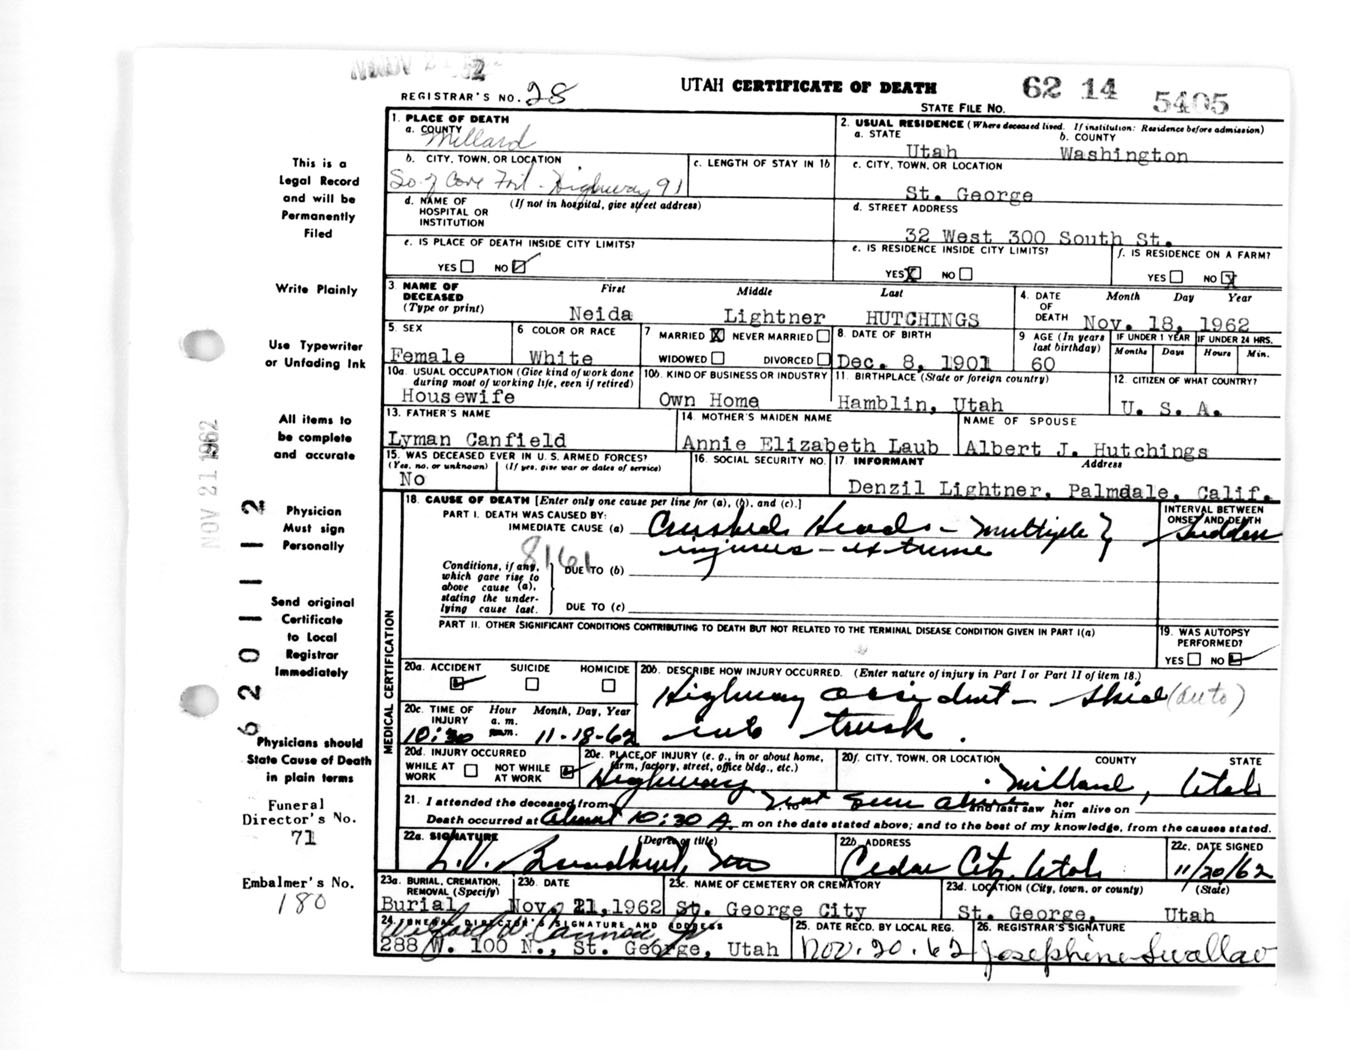 UTAH CERTIFICATE OF DEATH
62 14 5405
REGISTRAR'S NO. 28
STATE FILE NO.
1. PLACE OF DEATH
a. COUNTY
Millard
2. USUAL RESIDENCE (Where deceased lived. If institution: Residence before admission)
a. STATE b. COUNTY
Utah Washington
b. CITY, TOWN, OR LOCATION
So. of Cove Fort - Highway 91
c. LENGTH OF STAY IN 1b
c. CITY, TOWN, OR LOCATION
St. George
d. NAME OF HOSPITAL OR INSTITUTION (If not in hospital, give street address)
d. STREET ADDRESS
32 West 300 South St.
e. IS PLACE OF DEATH INSIDE CITY LIMITS?
YES NO
e. IS RESIDENCE INSIDE CITY LIMITS?
YES X NO
f. IS RESIDENCE ON A FARM?
YES NO X
3 NAME OF DECEASED (Type or print)
First Middle Last
Neida Lightner HUTCHINGS
4. DATE OF DEATH Month Day Year
Nov. 18, 1962
5. SEX
Female
6 COLOR OR RACE
White
7 MARRIED X NEVER MARRIED
WIDOWED DIVORCED
8. DATE OF BIRTH
Dec. 8, 1901
9 AGE (In years last birthday)
60
IF UNDER 1 YEAR IF UNDER 24 HRS.
Months Days Hours Min.
10a. USUAL OCCUPATION (Give kind of work done during most of working life, even if retired)
Housewife
10b. KIND OF BUSINESS OR INDUSTRY
Own Home
11. BIRTHPLACE (State or foreign country)
Hamblin, Utah
12. CITIZEN OF WHAT COUNTRY?
U. S. A.
13. FATHER'S NAME
Lyman Canfield
14. MOTHER'S MAIDEN NAME
Annie Elizabeth Laub
NAME OF SPOUSE
Albert J. Hutchings
15. WAS DECEASED EVER IN U. S. ARMED FORCES?
(Yes, no, or unknown) (If yes, give war or dates of service)
No
16. SOCIAL SECURITY NO.
17. INFORMANT Address
Denzil Lightner, Palmdale, Calif.
18. CAUSE OF DEATH [Enter only one cause per line for (a), (b), and (c).]
PART I. DEATH WAS CAUSED BY:
IMMEDIATE CAUSE (a) Crushed Head - Multiple
injuries - extreme
INTERVAL BETWEEN ONSET AND DEATH
Sudden
8161
Conditions, if any, which gave rise to above cause (a), stating the underlying cause last.
DUE TO (b)
DUE TO (c)
PART II. OTHER SIGNIFICANT CONDITIONS CONTRIBUTING TO DEATH BUT NOT RELATED TO THE TERMINAL DISEASE CONDITION GIVEN IN PART I(a)
19. WAS AUTOPSY PERFORMED?
YES NO
MEDICAL CERTIFICATION
20a. ACCIDENT SUICIDE HOMICIDE
20b. DESCRIBE HOW INJURY OCCURRED. (Enter nature of injury in Part I or Part II of item 18.)
Highway accident - skid (auto)
into truck.
20c. TIME OF INJURY Hour a. m. p.m. Month, Day, Year
10:30 11-18-62
20d. INJURY OCCURRED
WHILE AT WORK NOT WHILE AT WORK
20e. PLACE OF INJURY (e. g., in or about home, farm, factory, street, office bldg., etc.)
Highway
20f. CITY, TOWN, OR LOCATION COUNTY STATE
Millard, Utah
21. I attended the deceased from Not seen alive to and last saw her him alive on
Death occurred at About 10:30 A. m on the date stated above; and to the best of my knowledge, from the causes stated.
22a. SIGNATURE (Degree or title)
22b. ADDRESS
Cedar City, Utah
22c. DATE SIGNED
11/20/62
23a. BURIAL, CREMATION, REMOVAL (Specify)
Burial
23b. DATE
Nov. 21, 1962
23c. NAME OF CEMETERY OR CREMATORY
St. George City
23d. LOCATION (City, town, or county) (State)
St. George, Utah
24. FUNERAL DIRECTOR'S SIGNATURE AND ADDRESS
288 W. 100 N., St. George, Utah
25. DATE RECD. BY LOCAL REG.
Nov. 20. 62
26. REGISTRAR'S SIGNATURE
Josephine Swallow
This is a
Legal Record
and will be
Permanently
Filed
Write Plainly
Use Typewriter
or Unfading Ink
All items to
be complete
and accurate
Physician
Must sign
Personally
Send original
Certificate
to Local
Registrar
Immediately
Physicians should
State Cause of Death
in plain terms
Funeral
Director's No.
71
Embalmer's No.
180
NOV 21 1962
62 011 112